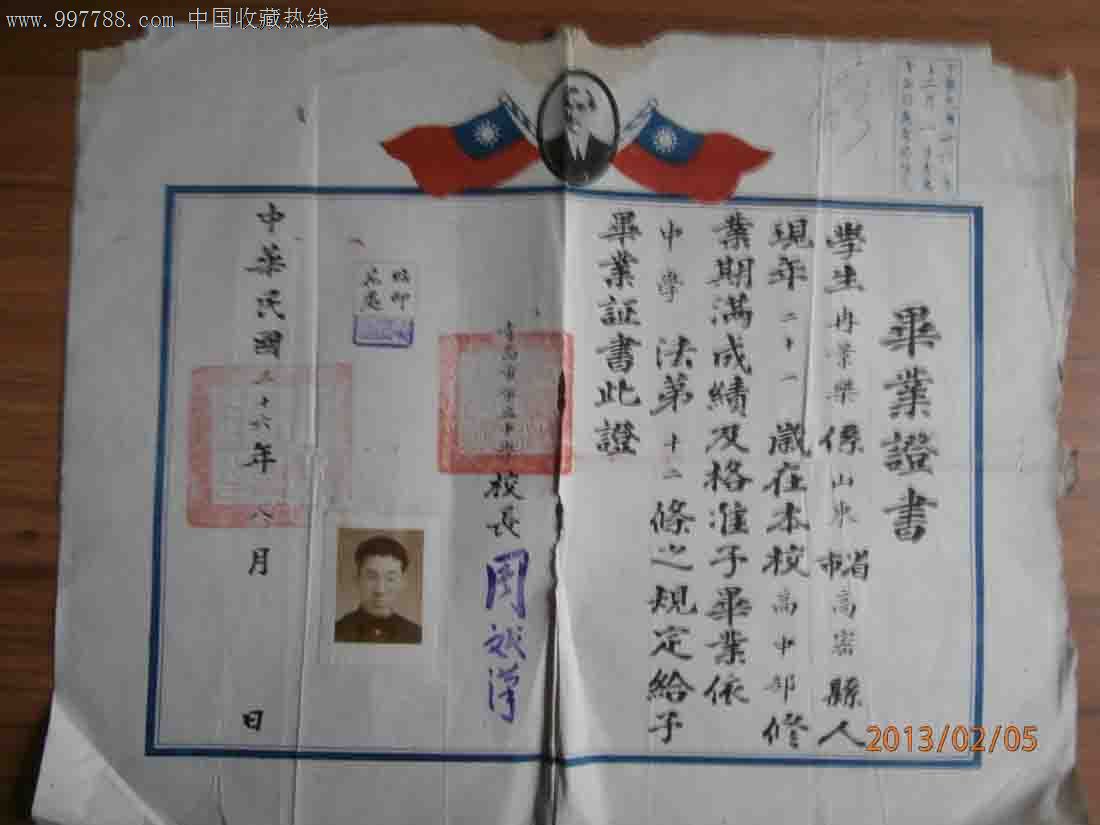 www.997788.com 中国收藏热线
畢業證書
學生冉景樂係山東省市高密縣人
現年二十一歲在本校高中部修
業期滿成績及格准予畢業依
中學法第十二條之規定給予
畢業証書此證
青島市市立中學校長
中華民國三十六年八月 日
2013/02/05